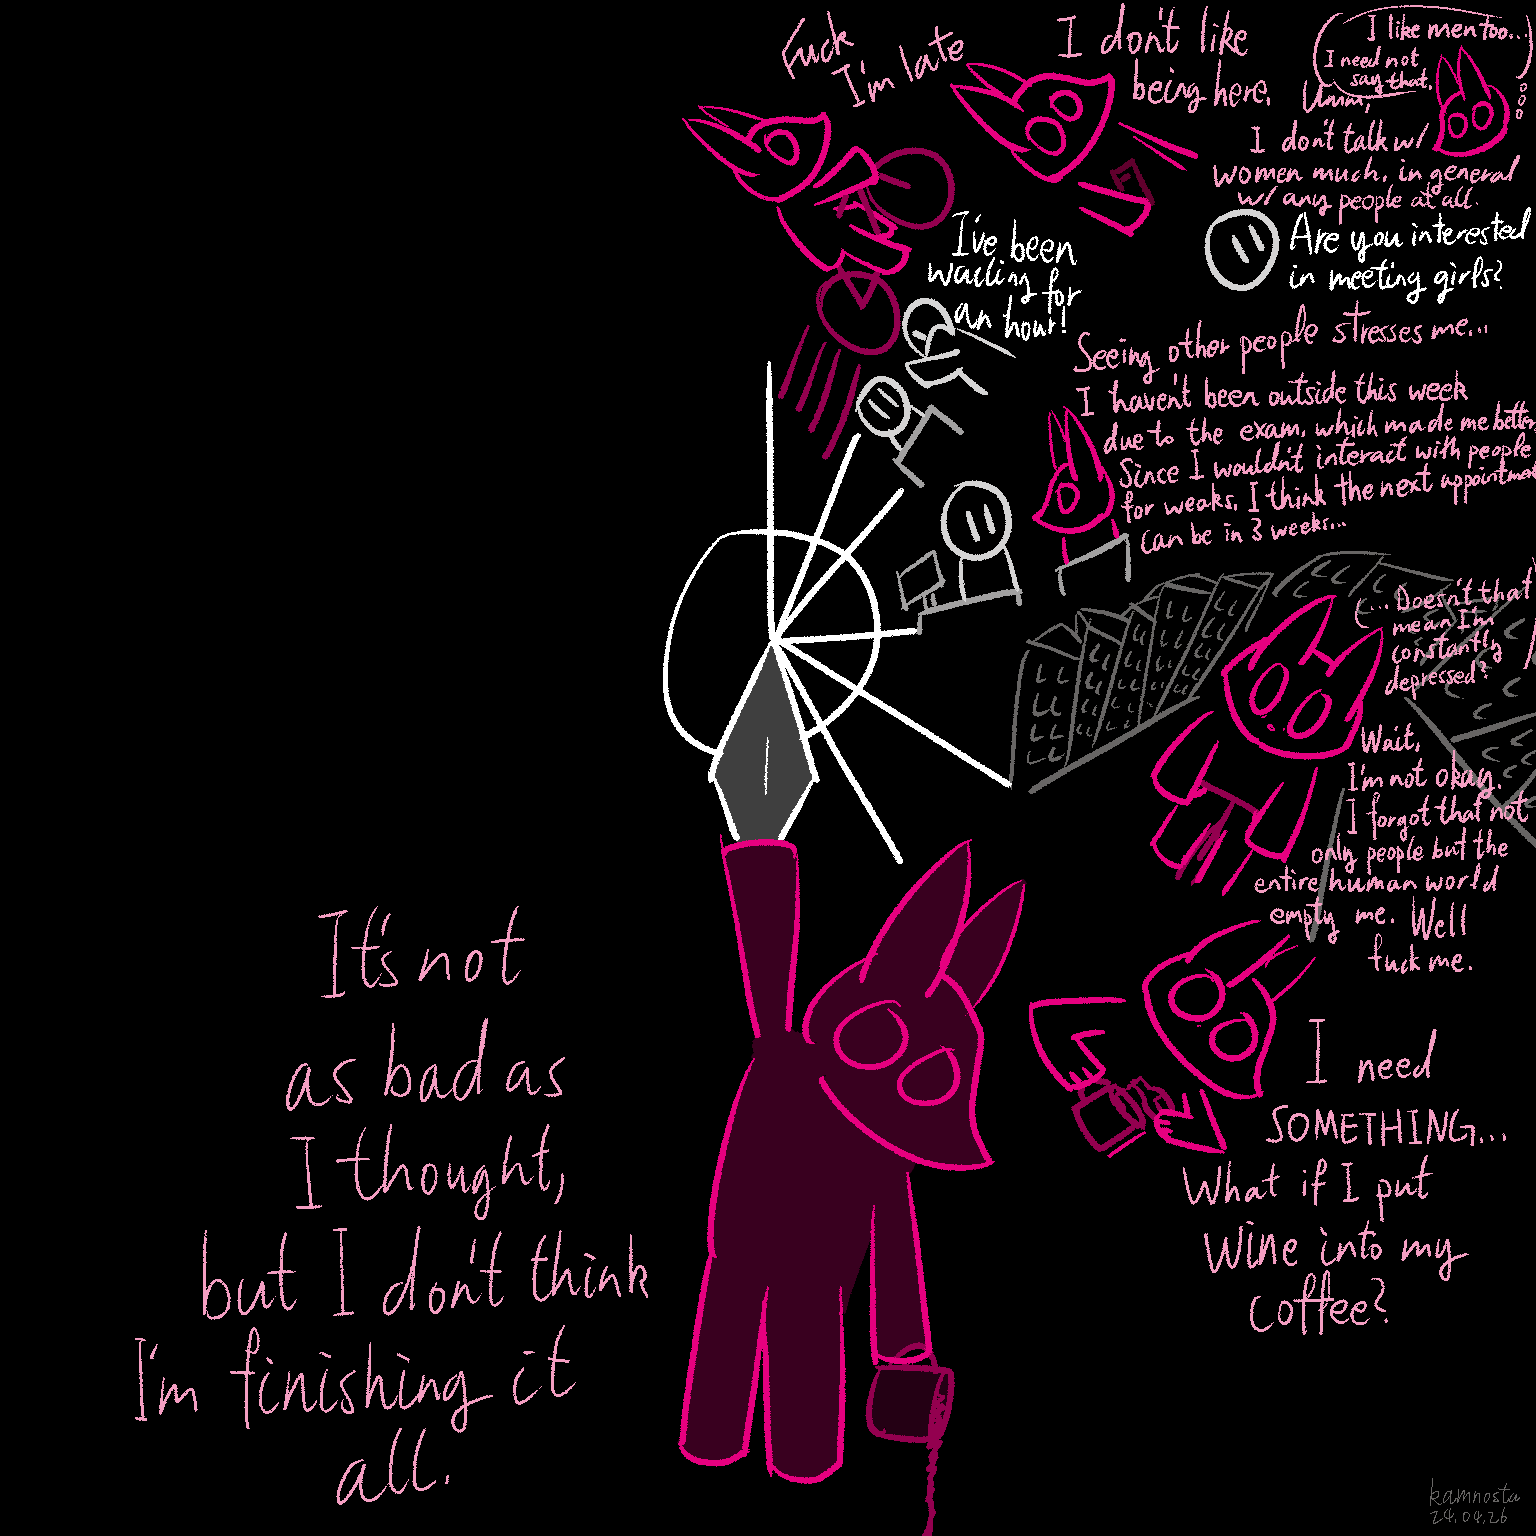 Fuck
I'm late
I don't like
being here.
I've been
waiting for
an hour!
I like men too...
I need not
say that.
Umm,
I don't talk w/
women much, in general
w/ any people at all.
Are you interested
in meeting girls?
Seeing other people stresses me...
I haven't been outside this week
due to the exam, which made me better.
Since I wouldn't interact with people
for weaks, I think the next appointment
can be in 3 weeks...
(... Doesn't that
mean I'm
constantly
depressed?
Wait,
I'm not okay.
I forgot that not
only people but the
entire human world
empty me. Well
fuck me.
I need
SOMETHING...
What if I put
wine into my
coffee?
It's not
as bad as
I thought,
but I don't think
I'm finishing it
all.
kamnosta
24.04.26